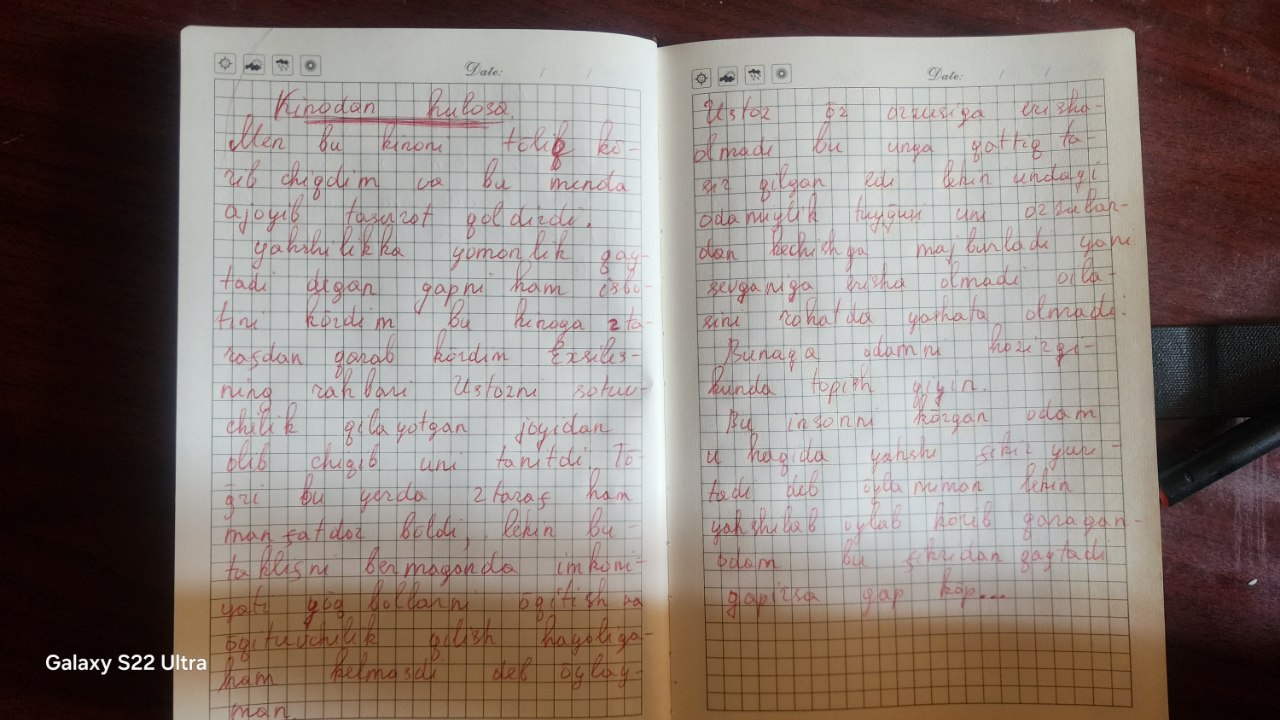 Date: / /
Kinodan hulosa.
Men bu kinoni tōliq kō-
rib chiqdim va bu menda
ajoyib tasurot qoldirdi.
yahshilikka yomonlik qay-
tadi degan gapni ham isbo-
tini kōrdim bu kinoga 2 ta-
rafdan qarab kōrdim Exseles-
ning rahbari Ustozni sotuv-
chilik qilayotgan joyidan
olib chiqib uni tanitdi. Tō-
ğri bu yerda 2 taraf ham
manfatdor bōldi, lekin bu
taklifni bermaganda imkoni-
yati yōq bollarni ōqitish va
ōqituvchilik qilish hayoliga-
ham kelmasdi deb ōylay-
man.
Date: / /
Ustoz ōz orzusiga erisha-
olmadi bu unga qattiq ta-
sir qilgan edi lekin undagi
odamiylik tuyğusi uni orzular-
dan kechishga majburladi yani
sevganiga erisha olmadi oila-
sini rohatda yashata olmadi.
Bunaqa odamni hozirgi-
kunda topish qiyin.
Bu insonni kōrgan odam
u haqida yahshi fikir yuri-
tadi deb ōylamiman lekin
yahshilab ōylab kōrib qaragan-
odam bu fikridan qaytadi
gapirsa gap kōp...
Galaxy S22 Ultra